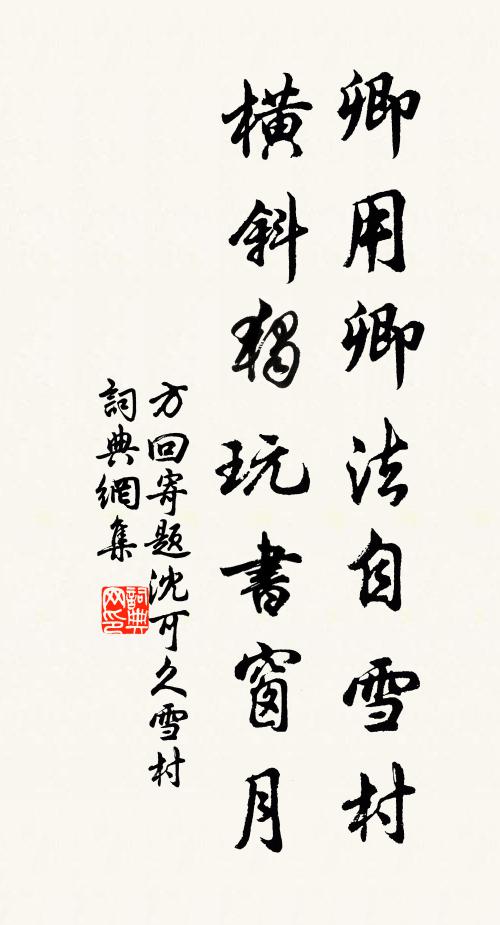 卿用卿法自雪村
橫斜獨玩書窗月
方回寄題沈可久雪村
詞典網集
詞典网印